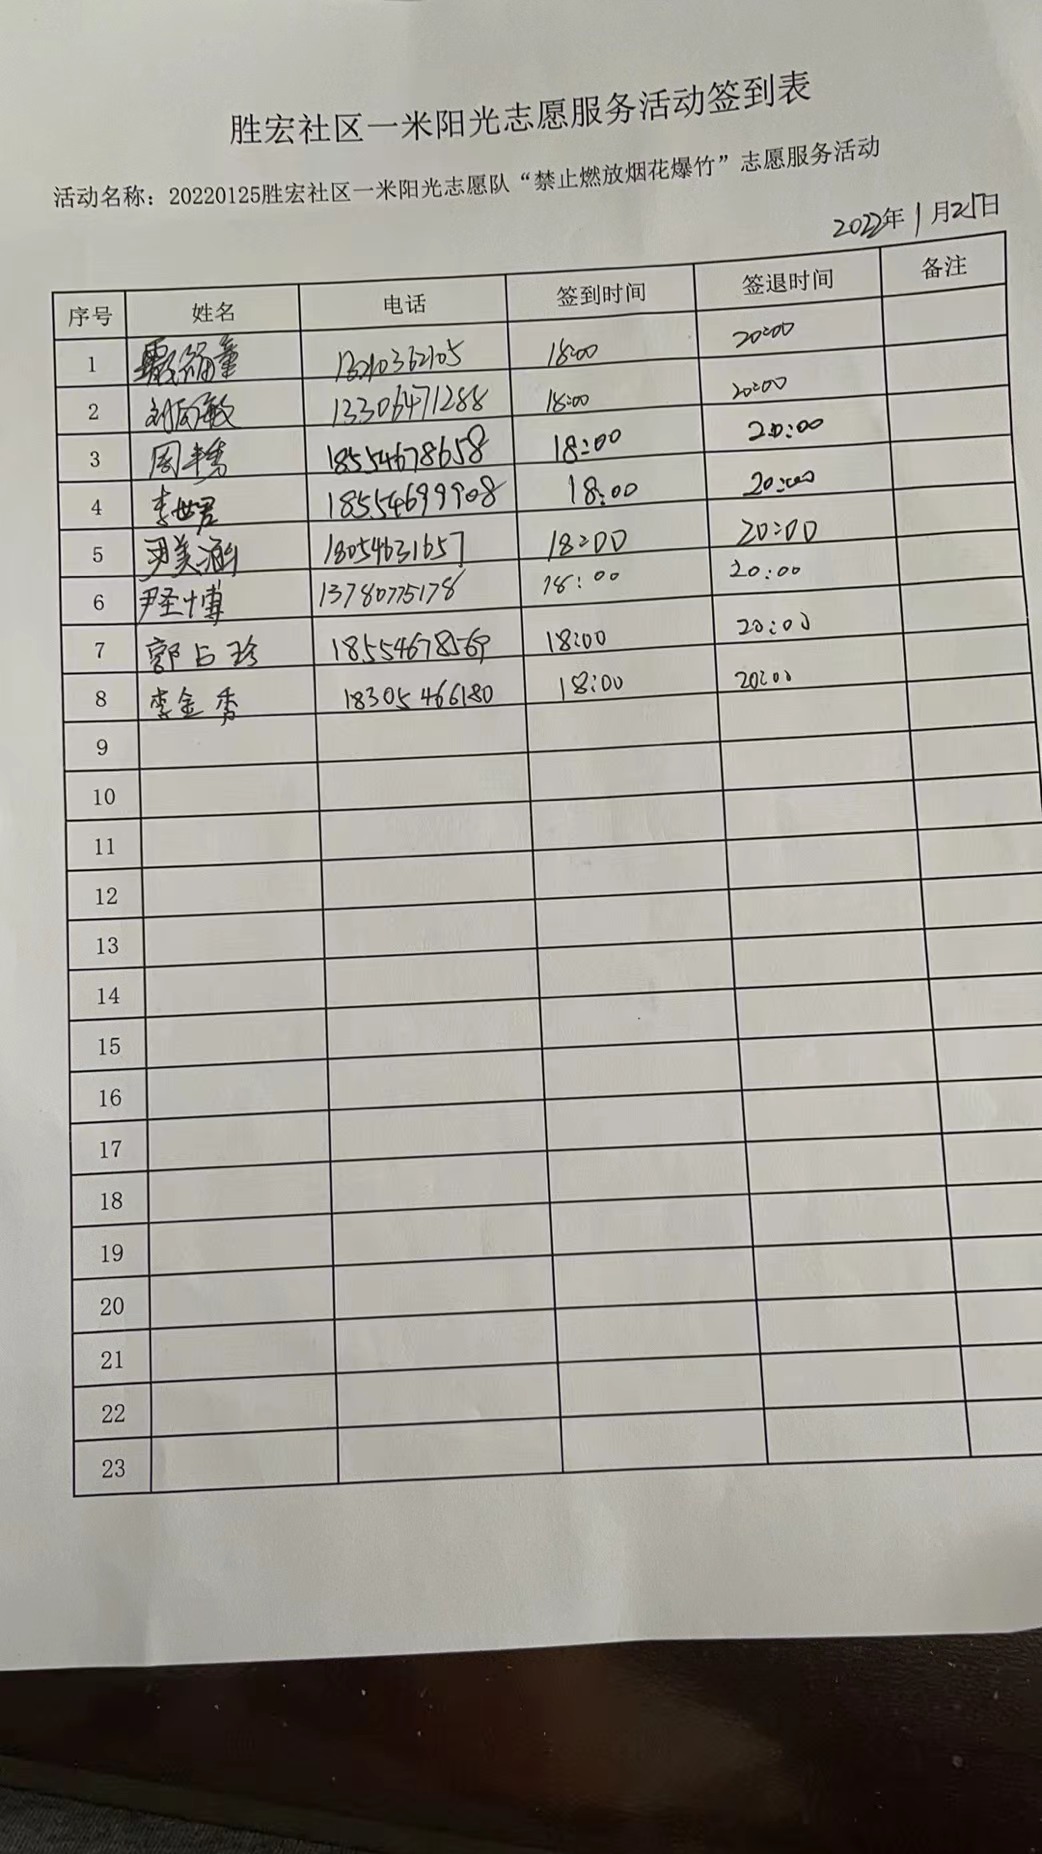 胜宏社区一米阳光志愿服务活动签到表
活动名称：20220125胜宏社区一米阳光志愿队“禁止燃放烟花爆竹”志愿服务活动
2022年1月25日
序号 姓名 电话 签到时间 签退时间 备注
1 13210362105 18:00 20:00
2 刘向敏 13306471288 18:00 20:00
3 周丰秀 18554678658 18:00 20:00
4 李世君 18554699908 18:00 20:00
5 尹美涵 18054631657 18:00 20:00
6 尹圣博 13780775178 18:00 20:00
7 郭占珍 18554678569 18:00 20:00
8 李金秀 18305466180 18:00 20:00
9
10
11
12
13
14
15
16
17
18
19
20
21
22
23